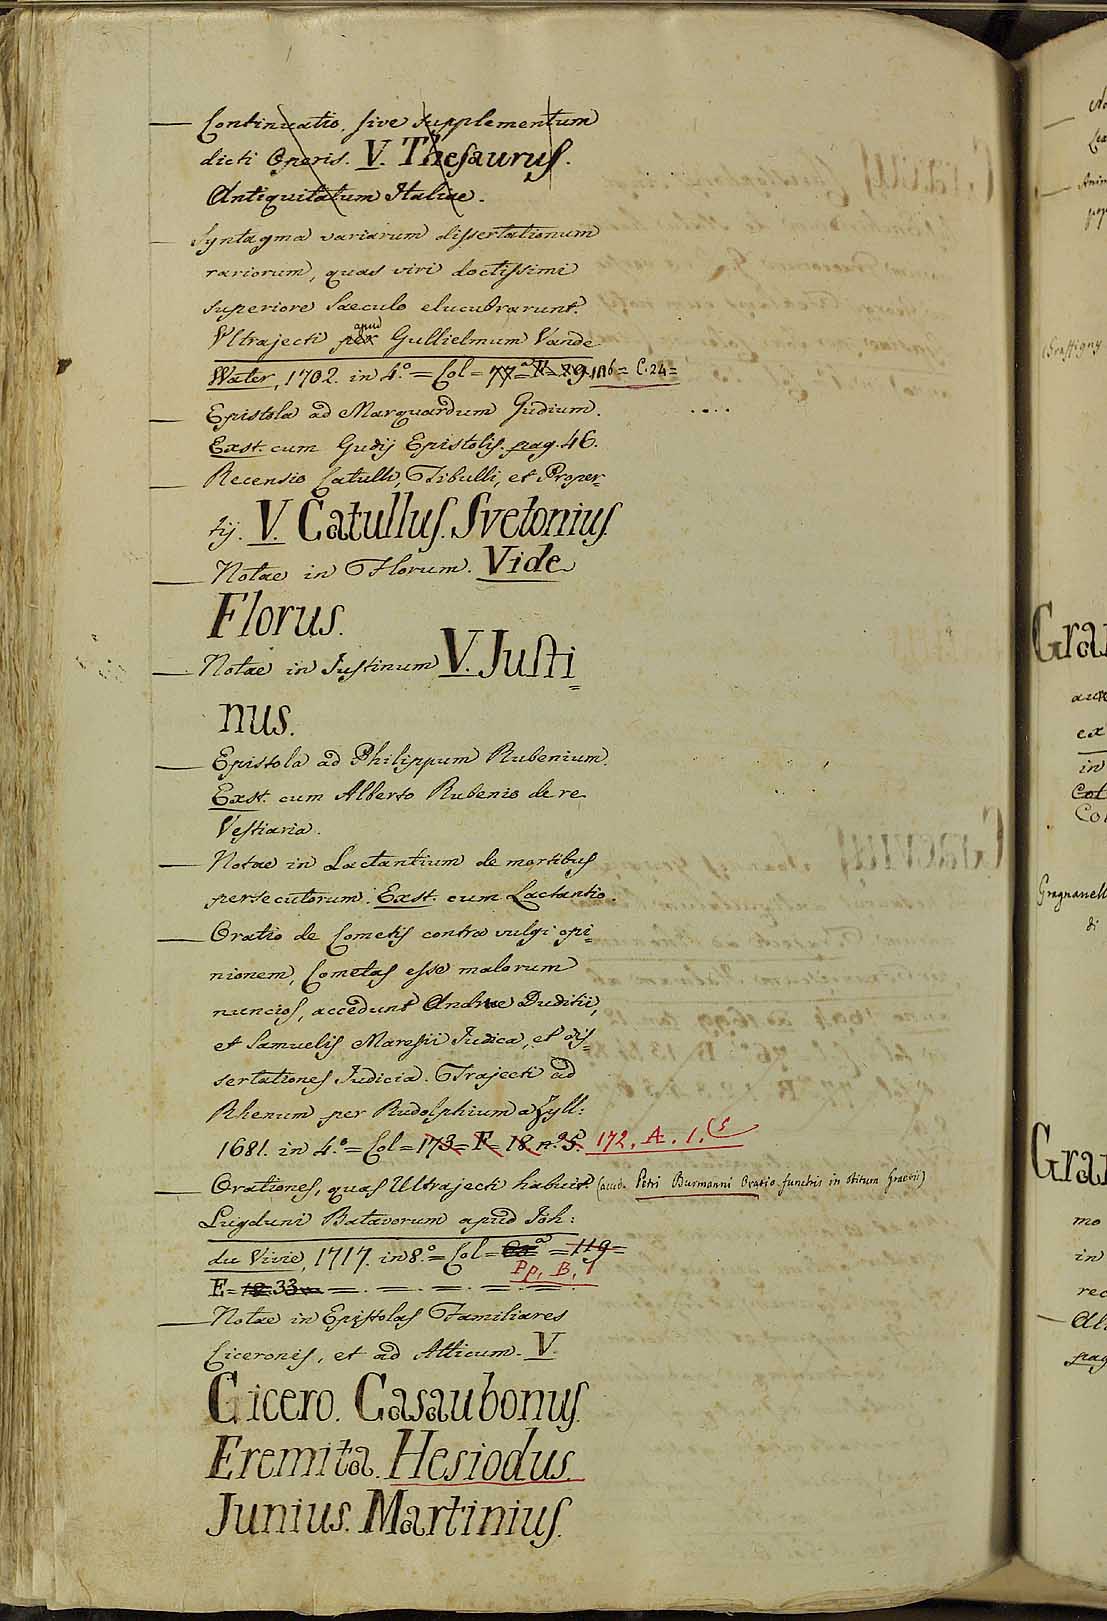 — Continuatio, sive Supplementum
dicti Operis. V. Thesaurus.
Antiquitatum Italiae.
— Syntagma variarum dissertationum
rariorum, quas viri doctissimi
superiore Saeculo elucubrarunt.
Vltrajecti apud Gullielmum Vande
Water, 1702. in 4.° = Col = C. 24 =
— Epistola ad Marquardum Gudium.
Exst. cum Gudij Epistolis. pag. 46.
— Recensio Catulli, Tibulli, et Proper=
tij. V. Catullus. Svetonius.
— Notae in Florum. Vide
Florus.
— Notae in Justinum V. Justi=
nus.
— Epistola ad Philippum Rubenium.
Exst. cum Alberto Rubenio de re
Vestiaria.
— Notae in Lactantium de mortibus
persecutorum. Exst. cum Lactantio.
— Oratio de Cometis contra vulgi opi=
nionem, Cometas esse malorum
nuncios, accedunt Andreae Duditii,
et Samuelis Maresii Judica, et dis=
sertationes Judicia. Trajecti ad
Rhenum per Rudolphium a Zyll:
1681. in 4.° = Col = 173 = F = 18. n.° 5. 172. A. 1. (5
— Orationes, quas Ultrajecti habuit. (accd. Petri Burmanni Oratio funebris in obitum Graevii)
Lugduni Batavorum apud Joh:
du Vivie, 1717. in 8.° = Col = = 119 =
Pp. B. 1
F = 33
— Notae in Epistolas Familiares
Ciceronis, et ad Atticum. V.
Cicero. Casaubonus.
Eremita. Hesiodus.
Junius. Martinius.
Gra
ex
in
Col
Gragnanell
di
Gra
mo
in
rec
pag